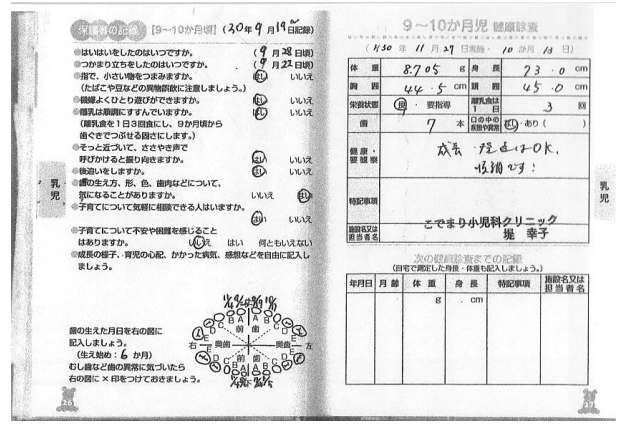 保護者の記録 【9～10か月頃】 (30年9月19日記録)
●はいはいをしたのはいつですか。 (9月28日頃)
●つかまり立ちをしたのはいつですか。 (9月22日頃)
●指で、小さい物をつまみますか。 はい いいえ
(たばこや豆などの異物誤飲に注意しましょう。)
●機嫌よくひとり遊びができますか。 はい いいえ
●離乳は順調にすすんでいますか。 はい いいえ
(離乳食を1日3回食にし、9か月頃から
歯ぐきでつぶせる固さにします。)
●そっと近づいて、ささやき声で
呼びかけると振り向きますか。 はい いいえ
●後追いをしますか。 はい いいえ
●歯の生え方、形、色、歯肉などについて、
気になることがありますか。 いいえ はい
●子育てについて気軽に相談できる人はいますか。
はい いいえ
●子育てについて不安や困難を感じること
はありますか。 いいえ はい 何ともいえない
●成長の様子、育児の心配、かかった病気、感想などを自由に記入し
ましょう。
歯の生えた月日を右の図に
記入しましょう。
(生え始め:6か月)
むし歯など歯の異常に気づいたら
右の図に×印をつけておきましょう。
E D C B A A B C D E
前歯
右 奥歯 奥歯 左
前歯
E D C B A A B C D E
下
乳児
26
9～10か月児 健康診査
(H30年11月27日実施・10か月13日)
体重 8705 g 身長 73.0 cm
胸囲 44.5 cm 頭囲 45.0 cm
栄養状態 良・要指導 離乳食は1日 3 回
歯 7 本 口の中の疾病や異常 なし・あり( )
健康・要観察 成長・発達はOK.
順調です!
特記事項
施設名又は担当者名 こでまり小児科クリニック
堤 幸子
次の健康診査までの記録
(自宅で測定した身長・体重も記入しましょう。)
年月日 月齢 体重 身長 特記事項 施設名又は担当者名
g . cm
乳児
27